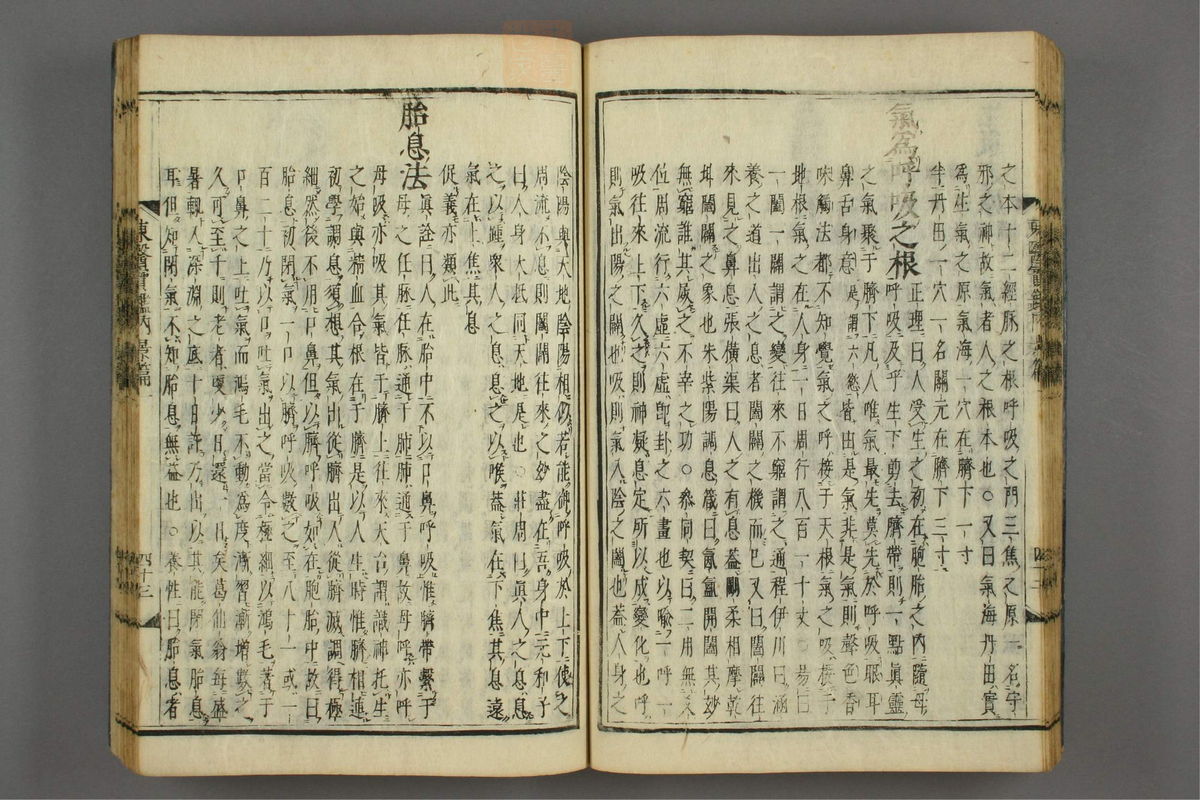 之本十二經脉之根呼吸之門三焦之原一名守
邪之神故氣者人之根本也○又曰氣海丹田實
爲生氣之原氣海一穴在臍下一寸
半丹田一穴一名關元在臍下三寸
氣爲呼吸之根
正理曰人受生之初在胞胎之內隨母
之呼吸及乎生下剪去臍帶則一點眞靈
之氣聚于臍下凡人唯氣最先莫先於呼吸眼耳
鼻舌身意是謂六慾皆由是氣非是氣則聲色香
味觸法都不知覺氣之呼接于天根氣之吸接于
地根氣之在人身一日周行八百一十丈○易曰
一闔一闢謂之變往來不窮謂之通程伊川曰涵
養之道出入之息者闔闢之機而已又曰闔闢往
來見之鼻息張橫渠曰人之有息蓋剛柔相摩乾
坤闔闢之象也朱紫陽調息箴曰氤氳開闔其妙
無窮誰其尸之不宰之功○參同契曰二用無爻
位周流行六虛六虛卽卦之六畫也以喩一呼一
吸往來上下久之則神凝息定所以成變化也呼
則氣出陽之闢也吸則氣入陰之闔也蓋人身之
陰陽與天地陰陽相似若能御呼吸於上下使之
周流不息則闔闢往來之妙盡在吾身中元和子
曰人身大抵同天地是也○莊周曰眞人之息息
之以踵衆人之息息之以喉蓋氣在下焦其息遠
氣在上焦其息
促義亦類此
胎息法
眞詮曰人在胎中不以口鼻呼吸惟臍帶繫于
母之任脉任脉通于肺肺通于鼻故母呼亦呼
母吸亦吸其氣皆于臍上往來天台謂識神托生
之始與精血合根在于臍是以人生時惟臍相連
初學調息須想其氣出從臍出入從臍滅調得極
細然後不用口鼻但以臍呼吸如在胞胎中故曰
胎息初閉氣一口以臍呼吸數之至八十一或一
百二十乃以口吐氣出之當令極細以鴻毛著于
口鼻之上吐氣而鴻毛不動爲度漸習漸增數之
久可至千則老者更少日還一日矣葛仙翁每盛
暑輒入深淵之底十日許乃出以其能閉氣胎息
耳但知閉氣不知胎息無益也○養性曰胎息者
東醫寶鑑內景篇一
四十三